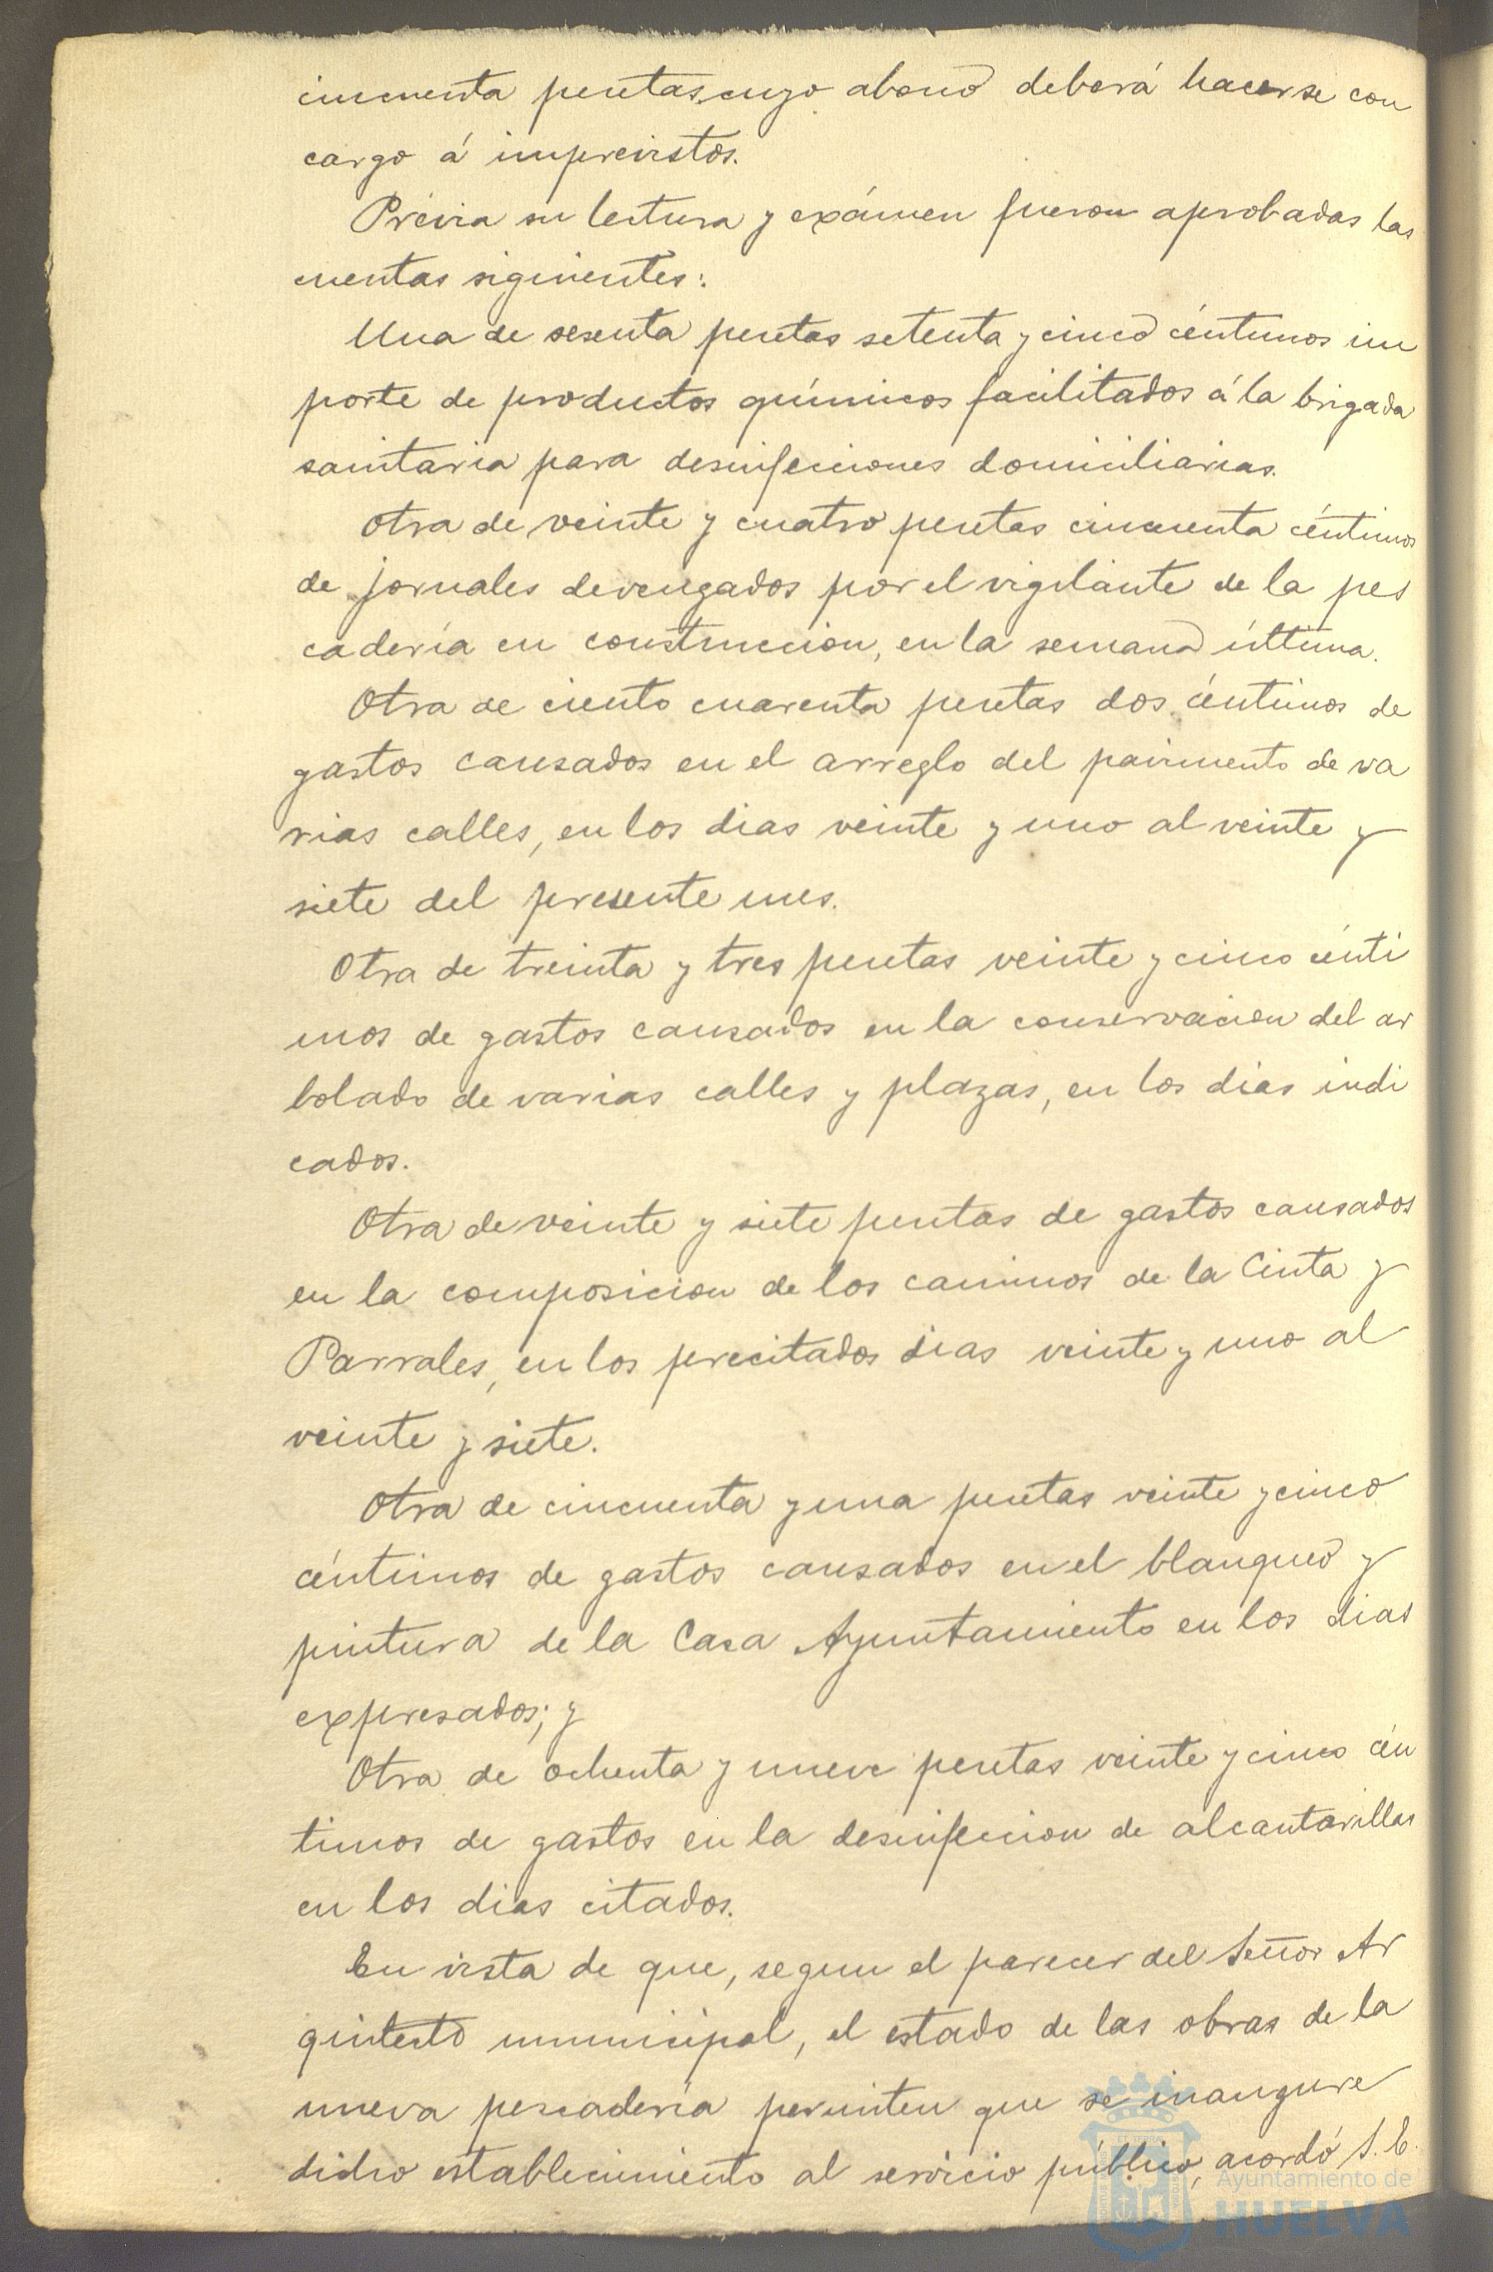 cincuenta pesetas, cuyo abono deberá hacerse con
cargo á imprevistos.
Prévia su lectura y exámen fueron aprobadas las
cuentas siguientes:
Una de sesenta pesetas setenta y cinco céntimos im
porte de productos químicos facilitados á la brigada
sanitaria para desinfecciones domiciliarias.
Otra de veinte y cuatro pesetas cincuenta céntimos
de jornales devengados por el vigilante de la pes
cadería en construccion, en la semana última.
Otra de ciento cuarenta pesetas dos céntimos de
gastos causados en el arreglo del pavimento de va
rias calles, en los dias veinte y uno al veinte y
siete del presente mes.
Otra de treinta y tres pesetas veinte y cinco cénti
mos de gastos causados en la conservacion del ar
bolado de varias calles y plazas, en los dias indi
cados.
Otra de veinte y siete pesetas de gastos causados
en la composicion de los caminos de la Cinta y
Parrales, en los precitados dias veinte y uno al
veinte y siete.
Otra de cincuenta y una pesetas veinte y cinco
céntimos de gastos causados en el blanqueo y
pintura de la Casa Ayuntamiento en los dias
expresados; y
Otra de ochenta y nueve pesetas veinte y cinco cén
timos de gastos en la desinfeccion de alcantarillas
en los dias citados.
En vista de que, segun el parecer del Señor Ar
quitecto municipal, el estado de las obras de la
nueva pescadería permiten que se inaugure
dicho establecimiento al servicio público, acordó S. E.
Ayuntamiento de
HUELVA